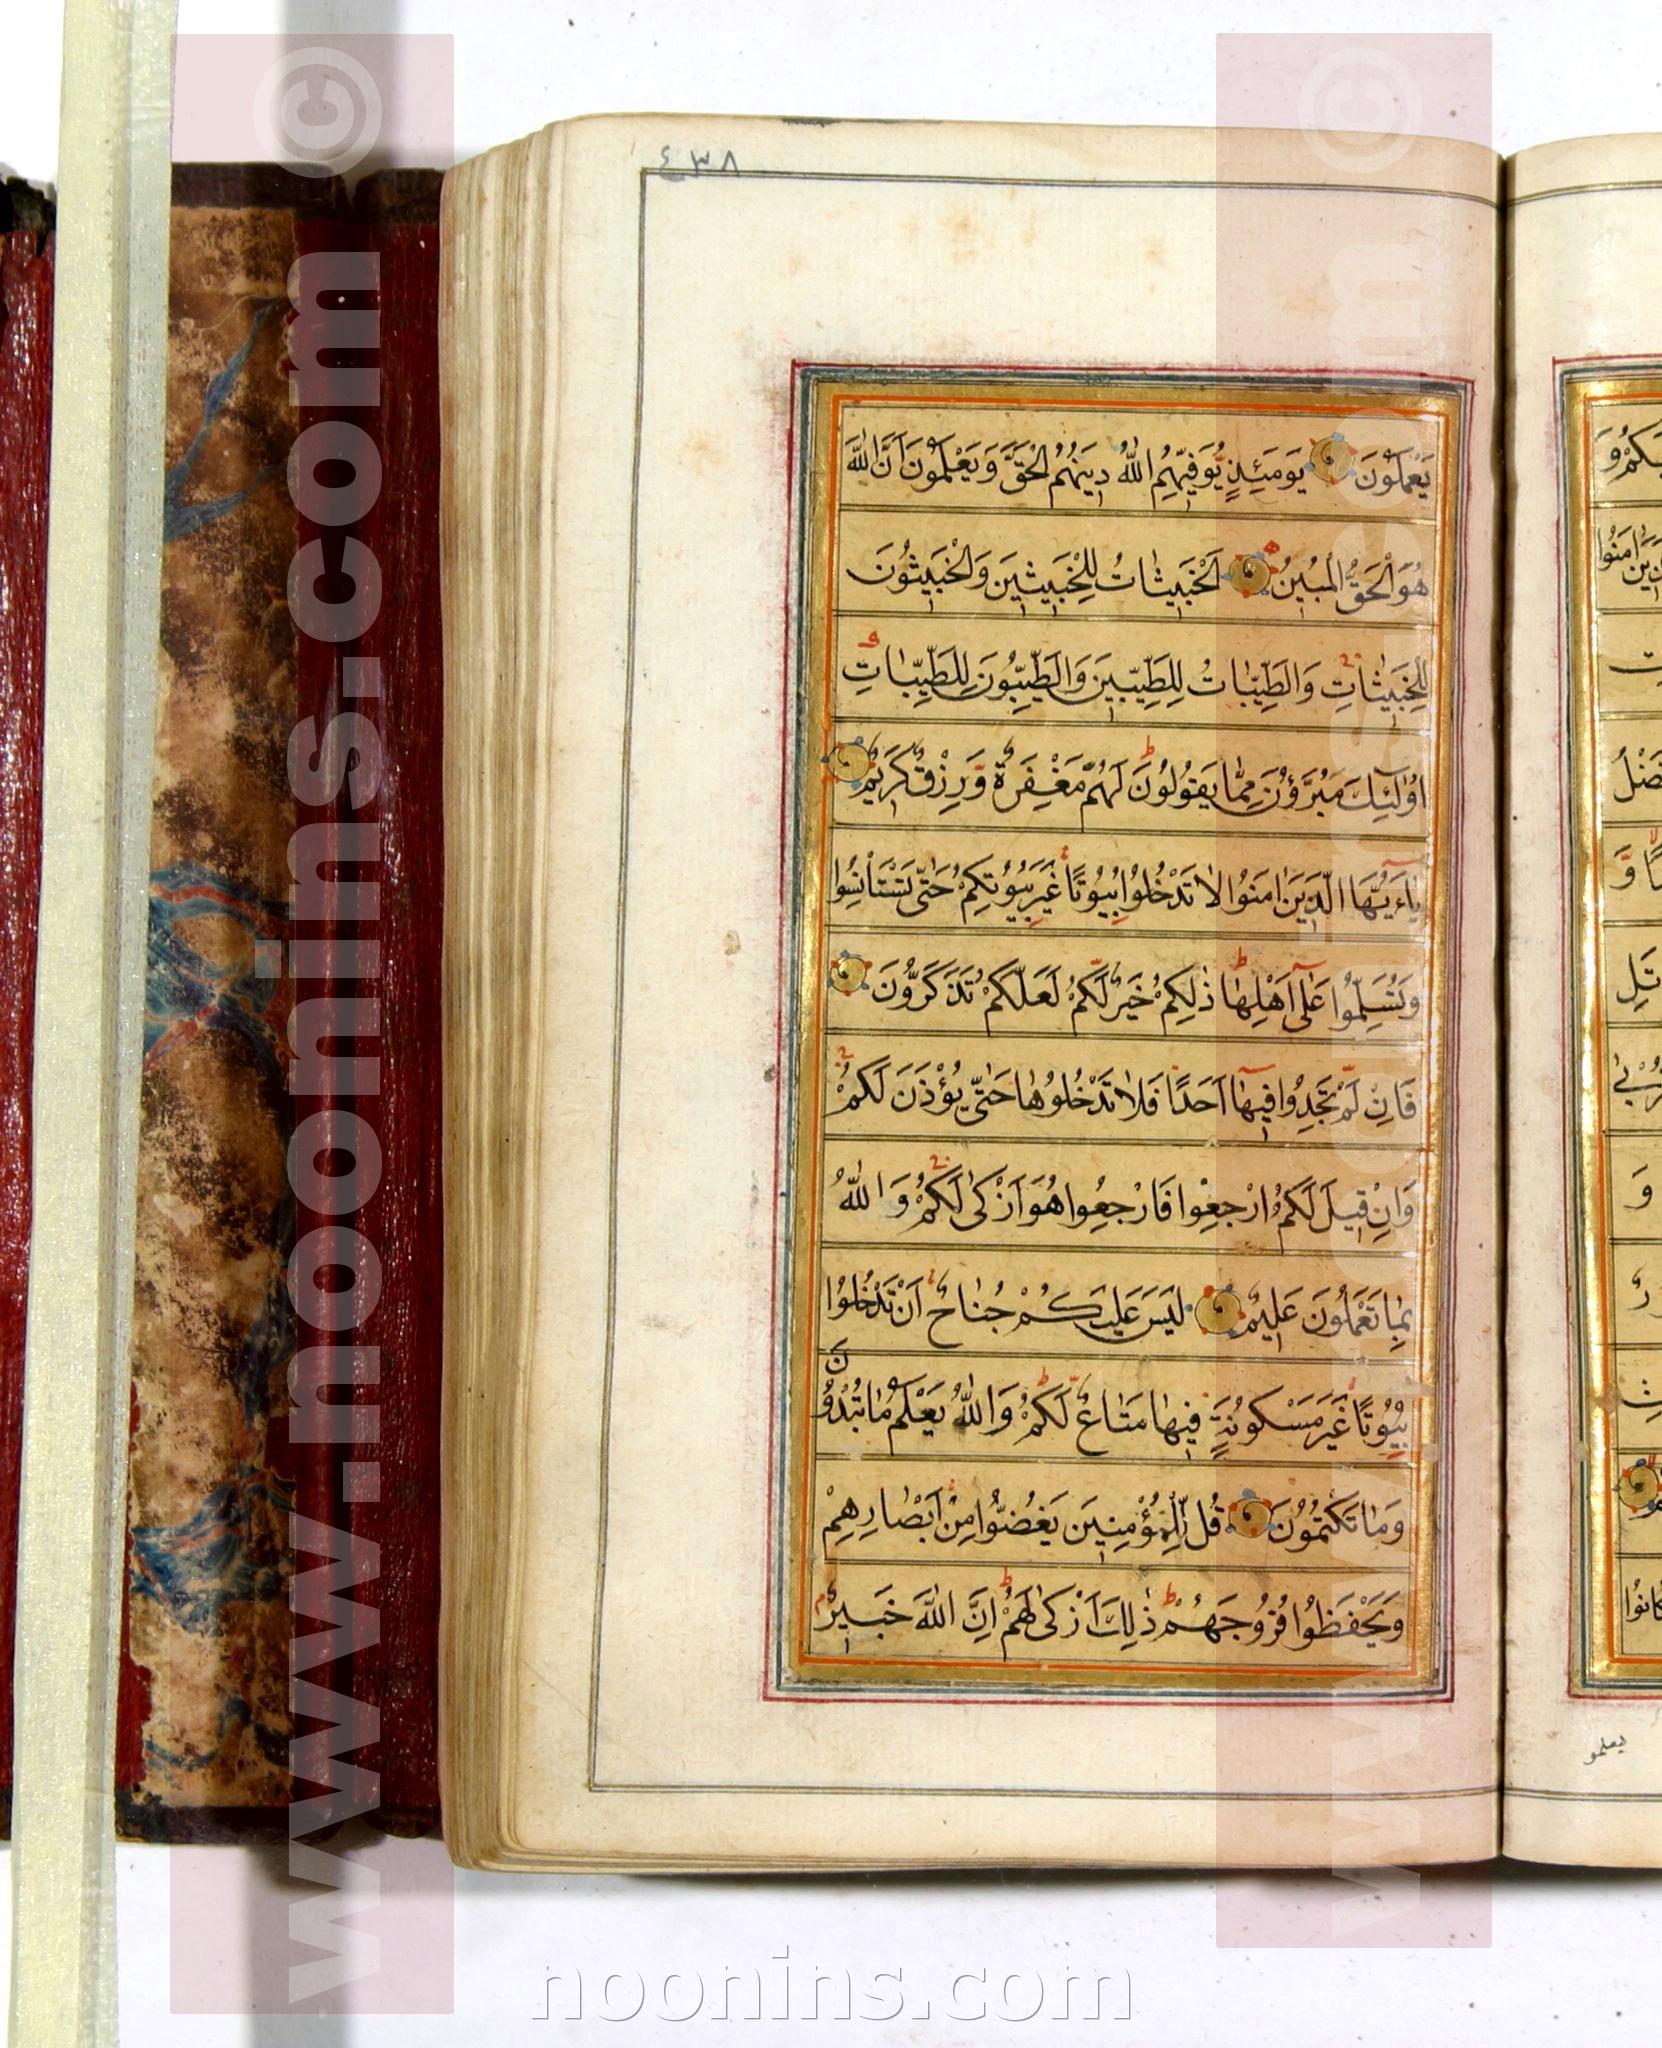 ٤٣٨
يَعْمَلُونَ يَوْمَئِذٍ يُوَفِّيهِمُ اللّٰهُ دِينَهُمُ الْحَقَّ وَيَعْلَمُونَ اَنَّ اللّٰهَ
هُوَ الْحَقُّ الْمُبِينُ اَلْخَبِيثٰاتُ لِلْخَبِيثِينَ وَالْخَبِيثُونَ
لِلْخَبِيثٰاتِ وَالطَّيِّبٰاتُ لِلطَّيِّبِينَ وَالطَّيِّبُونَ لِلطَّيِّبٰاتِ
اُولٰئِكَ مُبَرَّؤُنَ مِمّٰا يَقُولُونَ لَهُمْ مَغْفِرَةٌ وَرِزْقٌ كَرِيمٌ
يٰاءَيُّهَا الَّذِينَ اٰمَنُوا لٰا تَدْخُلُوا بُيُوتًا غَيْرَ بُيُوتِكُمْ حَتّٰى تَسْتَأْنِسُوا
وَتُسَلِّمُوا عَلٰى اَهْلِهٰا ذٰلِكُمْ خَيْرٌ لَكُمْ لَعَلَّكُمْ تَذَكَّرُونَ
فَاِنْ لَمْ تَجِدُوا فِيهٰا اَحَدًا فَلٰا تَدْخُلُوهٰا حَتّٰى يُؤْذَنَ لَكُمْ
وَاِنْ قِيلَ لَكُمُ ارْجِعُوا فَارْجِعُوا هُوَ اَزْكٰى لَكُمْ وَاللّٰهُ
بِمٰا تَعْمَلُونَ عَلِيمٌ لَيْسَ عَلَيْكُمْ جُنٰاحٌ اَنْ تَدْخُلُوا
بُيُوتًا غَيْرَ مَسْكُونَةٍ فِيهٰا مَتٰاعٌ لَكُمْ وَاللّٰهُ يَعْلَمُ مٰا تُبْدُونَ
وَمٰا تَكْتُمُونَ قُلْ لِلْمُؤْمِنِينَ يَغُضُّوا مِنْ اَبْصٰارِهِمْ
وَيَحْفَظُوا فُرُوجَهُمْ ذٰلِكَ اَزْكٰى لَهُمْ اِنَّ اللّٰهَ خَبِيرٌ
يعلمو
www.noonins.com ©
www.noonins.com ©
noonins.com